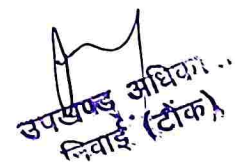 उपखण्ड अधिका..
निवाई (टोंक)